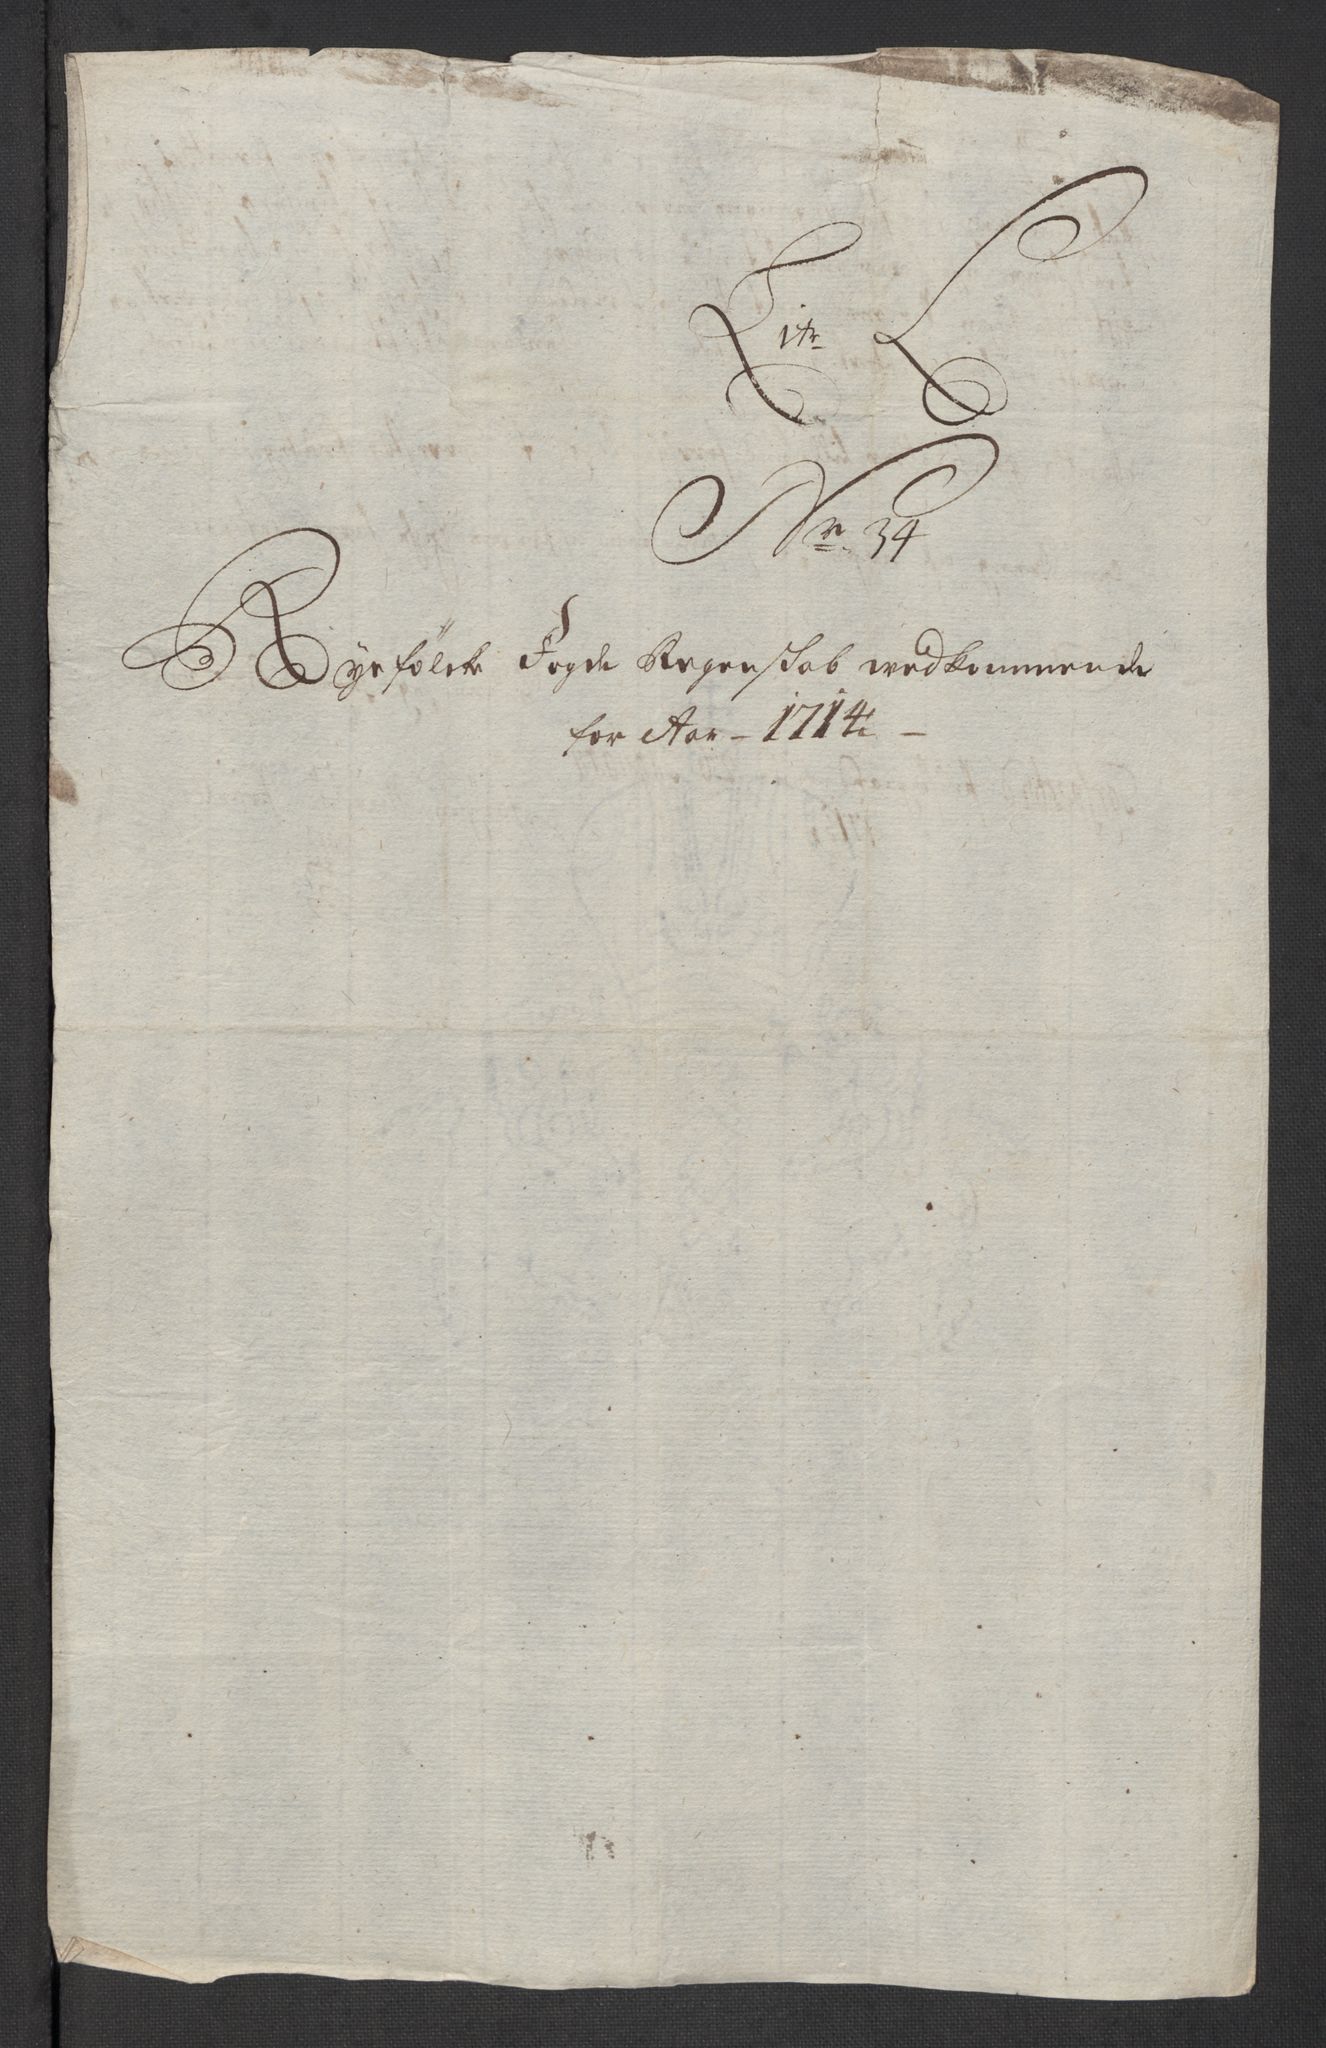 Litr L
Nr. 34
Ryefölcke Fogde Regenskab wedkommende
for Aar - 1714 -